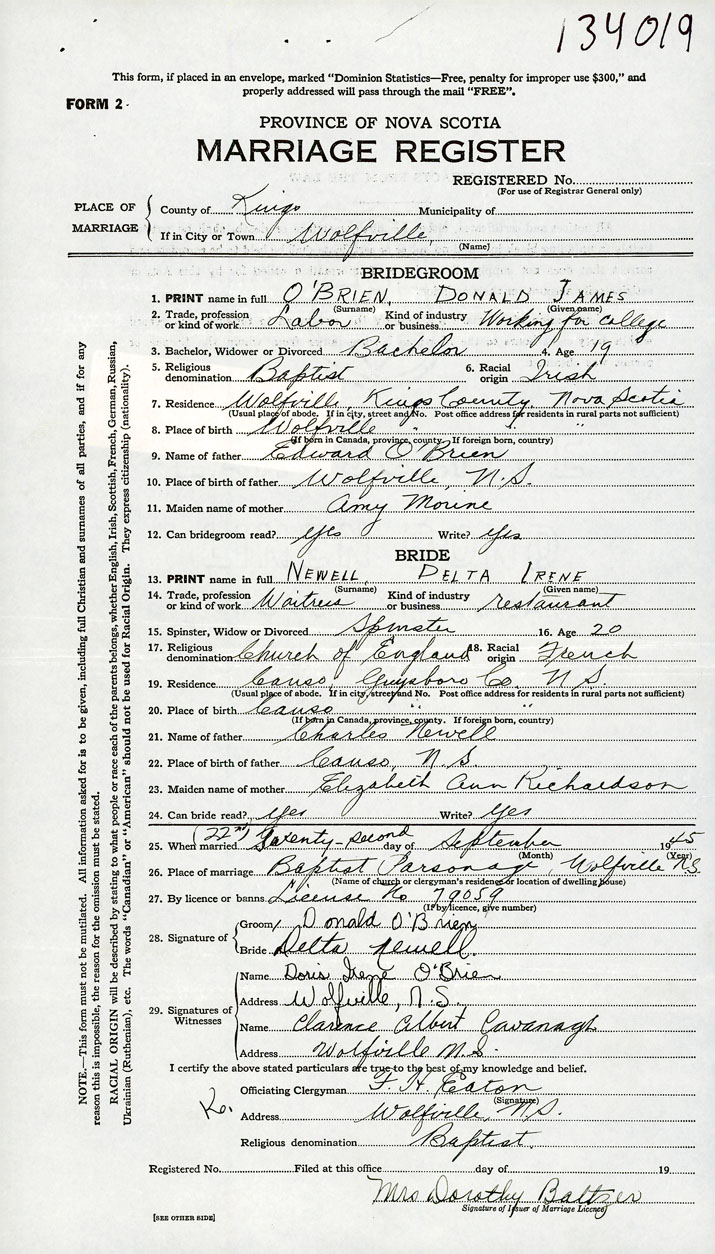 134019
This form, if placed in an envelope, marked "Dominion Statistics—Free, penalty for improper use $300," and
properly addressed will pass through the mail "FREE".
FORM 2
PROVINCE OF NOVA SCOTIA
MARRIAGE REGISTER
REGISTERED No.
(For use of Registrar General only)
PLACE OF MARRIAGE
County of Kings Municipality of
If in City or Town Wolfville,
(Name)
BRIDEGROOM
1. PRINT name in full O'BRIEN, DONALD JAMES
(Surname) (Given name)
2. Trade, profession or kind of work Labor Kind of industry or business Working for College
3. Bachelor, Widower or Divorced Bachelor 4. Age 19
5. Religious denomination Baptist 6. Racial origin Irish
7. Residence Wolfville Kings County, Nova Scotia
(Usual place of abode. If in city, street and No. Post office address for residents in rural parts not sufficient)
8. Place of birth Wolfville " "
(If born in Canada, province, county. If foreign born, country)
9. Name of father Edward O'Brien
10. Place of birth of father Wolfville, N.S.
11. Maiden name of mother Amy Morine
12. Can bridegroom read? yes Write? yes
BRIDE
13. PRINT name in full NEWELL, DELTA IRENE
(Surname) (Given name)
14. Trade, profession or kind of work Waitress Kind of industry or business restaurant
15. Spinster, Widow or Divorced Spinster 16. Age 20
17. Religious denomination Church of England 18. Racial origin French
19. Residence Canso, Guysboro Co., N.S.
(Usual place of abode. If in city, street and No. Post office address for residents in rural parts not sufficient)
20. Place of birth Canso " "
(If born in Canada, province, county. If foreign born, country)
21. Name of father Charles Newell
22. Place of birth of father Canso, N.S.
23. Maiden name of mother Elizabeth Ann Richardson
24. Can bride read? yes Write? yes
25. When married (22nd) Twenty-second day of September 1945
(Month) (Year)
26. Place of marriage Baptist Parsonage, Wolfville N.S.
(Name of church or clergyman's residence or location of dwelling house)
27. By licence or banns License No 79059
(If by licence, give number)
28. Signature of
Groom Donald O'Brien
Bride Delta Newell.
29. Signatures of Witnesses
Name Doris Irene O'Brien
Address Wolfville, N.S.
Name Clarence Albert Cavanagh
Address Wolfville N.S.
I certify the above stated particulars are true to the best of my knowledge and belief.
Officiating Clergyman F. H. Eaton
(Signature)
Address Wolfville, N.S.
Religious denomination Baptist.
Registered No. Filed at this office day of 19
Mrs Dorothy Baltzer
Signature of Issuer of Marriage Licence
[SEE OTHER SIDE]
NOTE.—This form must not be mutilated. All information asked for is to be given, including full Christian and surnames of all parties, and if for any
reason this is impossible, the reason for the omission must be stated.
RACIAL ORIGIN will be described by stating to what people or race each of the parents belongs, whether English, Irish, Scottish, French, German, Russian,
Ukrainian (Ruthenian), etc. The words "Canadian" or "American" should not be used for Racial Origin. They express citizenship (nationality).